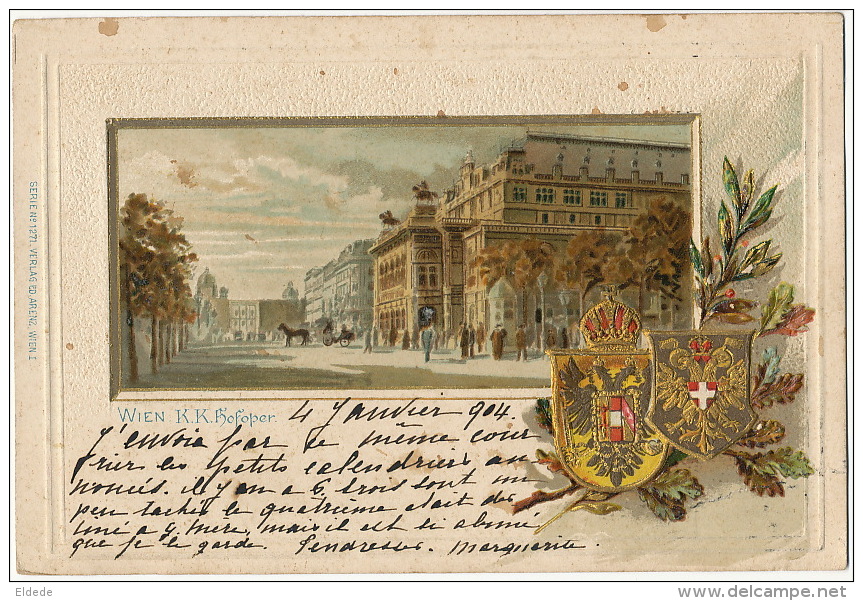 SERIE Nº 1271, VERLAG ED. ARENZ, WIEN I
WIEN K.K. Hofoper.
4 Janvier 904.
J'envoie par ce même cour
rier les petits calendriers an
noncés. il y en a 6, trois sont un
peu tachés le quatrième était des
tiné a g. mère, mais il est si abimé
que je le garde. Tendresses. Marguerite.
Eldede
delcampe.net